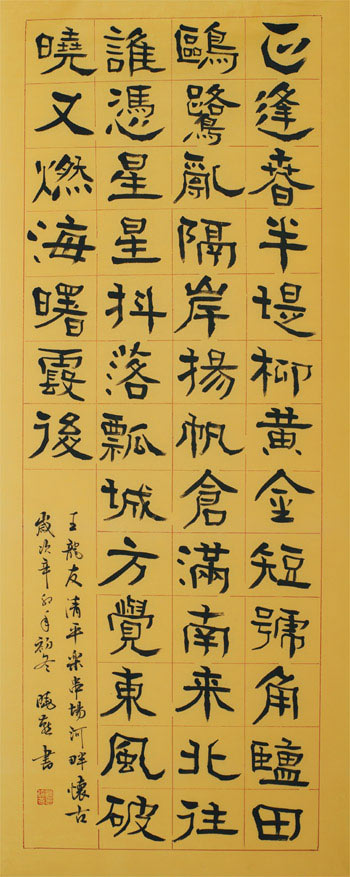 正逢春半堤柳黄金短號角鹽田
鷗鷺亂隔岸揚帆倉滿南来北往
誰憑星星抖落瓢城方覺東風破
曉又燃海曙霞後
王龍友清平樂串場河畔懷古
歲次辛卯年初冬 曉 書